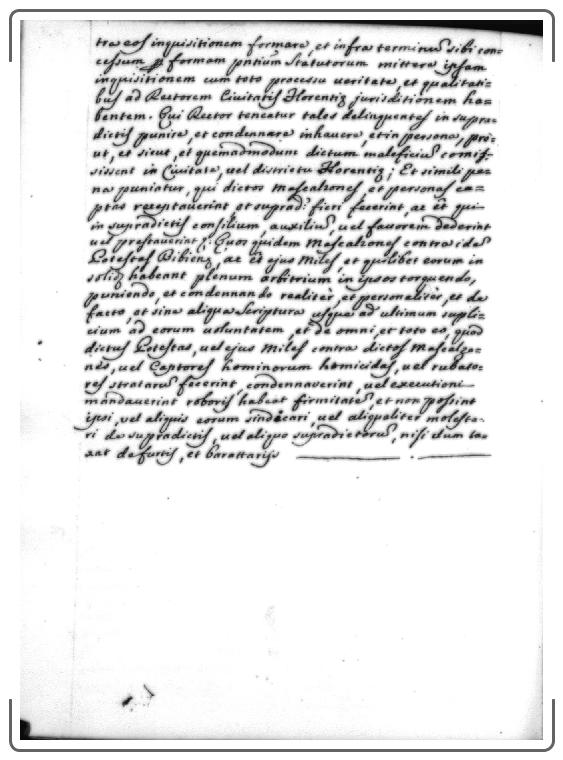 tra eos inquisitionem formare, et infra terminũ sibi con=
cessum formam pñtium statutorum mittere ipsam
inquisitionem cum toto processu ueritate, et qualitati=
bus ad Rectorem Ciuitatis Florentię jurisditionem ha=
bentem. Qui Rector teneatur tales delinquentes in supra=
dictis punire, et condennare in hauere, et in persona, pro=
ut, et sicut, et quemadmodum dictum maleficiũ comis=
sissent in Ciuitate, uel districtu Florentię; Et simili pę=
na puniatur, qui dictos Mascalzones, et personas ca=
ptas receptauerint et supradˢ: fieri fecerint, ac ẽt qui
in supradictis consilium, auxiliũ, uel fauorem dederint
uel prestauerint; Quos quidem Mascalzones contra idẽ
Potestas Bibienę, ac ẽt ejus Miles, et quilibet eorum in
solidũ habeant plenum arbitrium in ipsos torquendo,
puniendo, et condennando realitèr, et personalitèr, et de
facto, et sine aliqua scriptura usque ad ultimum supli=
cium ad eorum uoluntatem, et de omni, et toto eo, quod
dictus Potestas, uel ejus Miles contra dictos Mascalzo=
nes, uel Captores hominorum homicidas, uel rubato=
res stratarũ fecerint, condennauerint, uel executioni
mandauerint roboris habeat firmitatẽ, et non possint
ipsi, uel aliquis eorum sindicari, uel aliqualiter molesta=
ri de supradictis, uel aliquo supradictorũ, nisi dum ta=
xat de furtis, et barattarijs